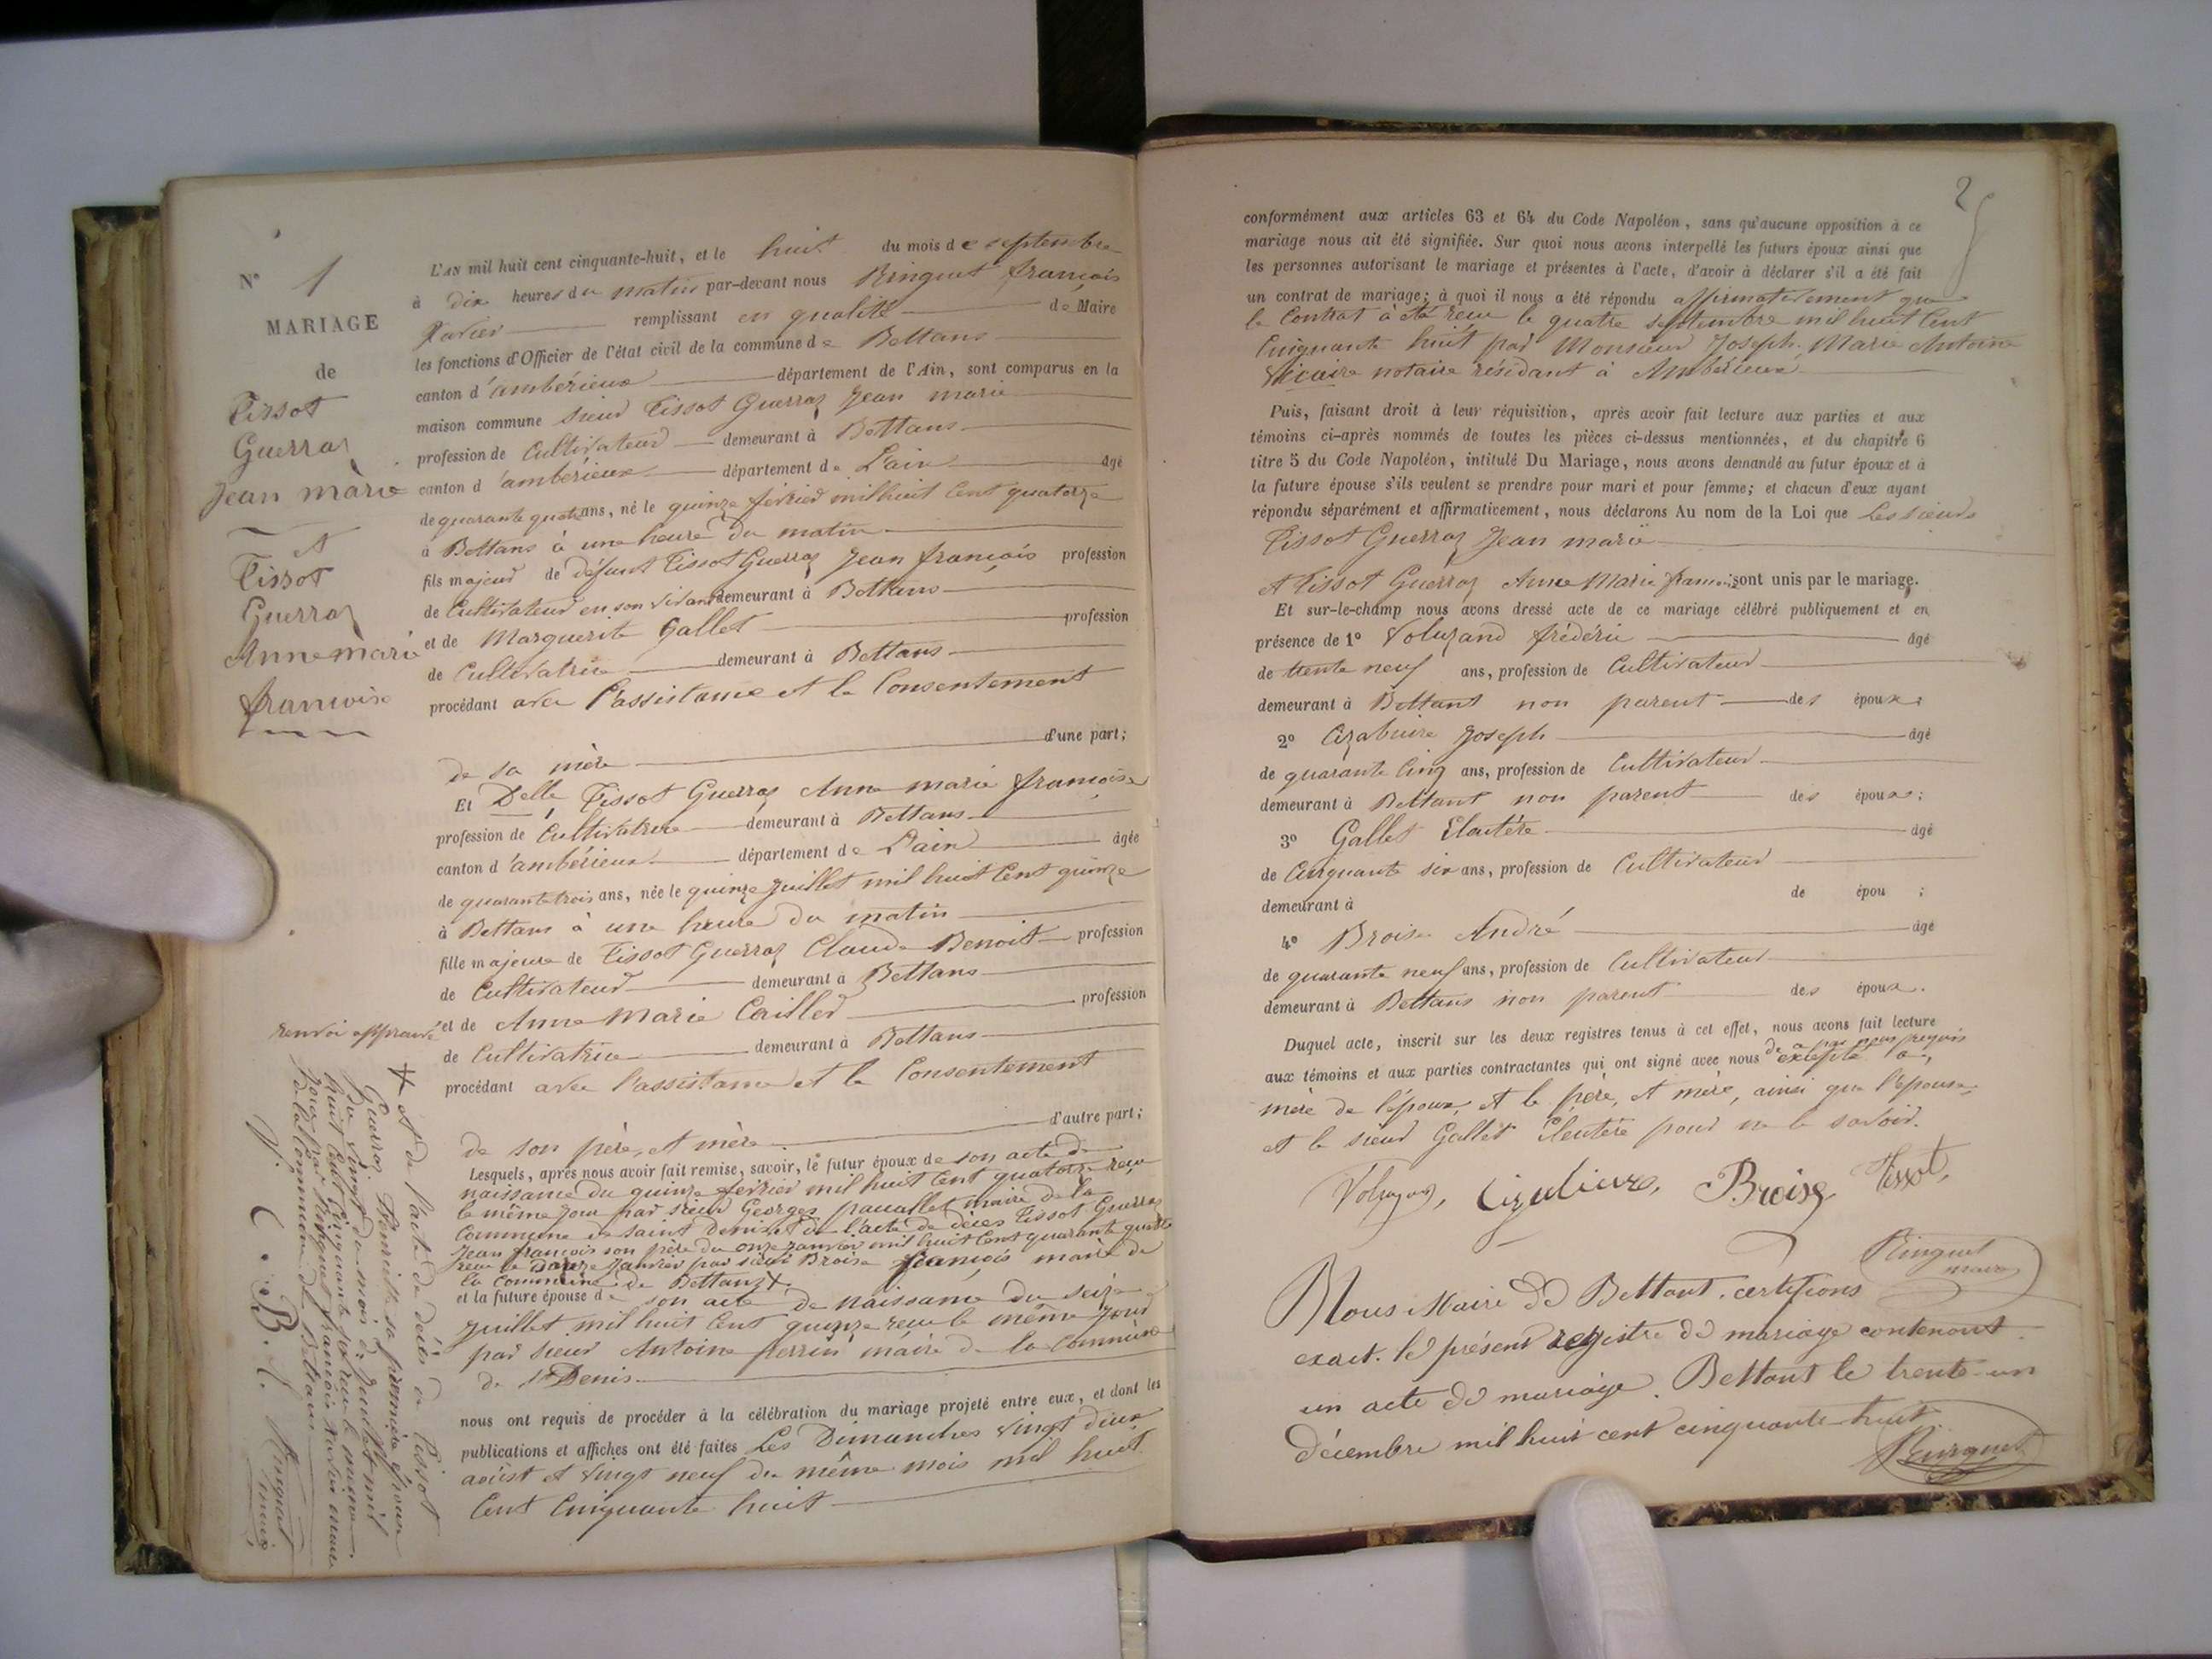 N° 1
MARIAGE
de
Tissot
Guerraz
Jean marie
et
Tissot
Guerraz
Anne marie
francoise
L'AN mil huit cent cinquante-huit, et le huit du mois de septembre
à dix heures du matin par-devant nous Ringuet françois
Xavier remplissant en qualité de Maire
les fonctions d'Officier de l'état civil de la commune de Bettans
canton d'ambérieux département de l'Ain, sont comparus en la
maison commune sieur Tissot Guerraz Jean marie
profession de Cultivateur demeurant à Bettans
canton d'ambérieux département de L'ain âgé
de quarante quatre ans, né le quinze février mil huit Cent quatorze
à Bettans à une heure du matin
fils majeur de défunt Tissot Guerraz Jean françois profession
de Cultivateur en son vivant demeurant à Bettans
et de Marguerite Gallet profession
de Cultivatrice demeurant à Bettans
procédant avec l'assistance et le Consentement
de sa mère d'une part;
Et Delle Tissot Guerraz Anne marie françoise
profession de Cultivatrice demeurant à Bettans
canton d'ambérieux département de L'ain âgée
de quarante trois ans, née le quinze juillet mil huit Cent quinze
à Bettans à une heure du matin
fille majeure de Tissot Guerraz Claude Benoit profession
de Cultivateur demeurant à Bettans
et de Anne Marie Cailler profession
de Cultivatrice demeurant à Bettans
procédant avec l'assistance et le Consentement
de son père, et mère d'autre part;
Lesquels, après nous avoir fait remise, savoir, le futur époux de son acte de
naissance du quinze février mil huit Cent quatorze reçu
le même jour par sieur Georges maire de la
Commune de saint Denis et de l'acte de décès Tissot Guerraz
Jean françois son père du onze janvier mil huit Cent quarante quatre
reçu le douze Janvier par sieur Broise françois maire de
la Commune de Bettans X
et la future épouse de son acte de naissance du seize
juillet mil huit Cent quinze reçu le même jour
par sieur Antoine perrin maire de la Commune
de St Denis
nous ont requis de procéder à la célébration du mariage projeté entre eux, et dont les
publications et affiches ont été faites Les Dimanches Vingt deux
août et Vingt neuf du même mois mil huit
Cent Cinquante huit
renvoi approuvé
X et de l'acte de décès de Tissot
Guerraz sa première épouse
du vingt du mois de Juillet mil
huit Cent Cinquante reçu le même
jour par Ringuet françois Xavier maire
de la Commune de Bettans
Ringuet
maire
2
conformément aux articles 63 et 64 du Code Napoléon, sans qu'aucune opposition à ce
mariage nous ait été signifiée. Sur quoi nous avons interpellé les futurs époux ainsi que
les personnes autorisant le mariage et présentes à l'acte, d'avoir à déclarer s'il a été fait
un contrat de mariage; à quoi il nous a été répondu affirmativement que
le Contrat à été reçu le quatre septembre mil huit Cent
Cinquante huit par Monsieur Joseph Marie Antoine
Vicaire notaire résidant à Ambérieux
Puis, faisant droit à leur réquisition, après avoir fait lecture aux parties et aux
témoins ci-après nommés de toutes les pièces ci-dessus mentionnées, et du chapitre 6
titre 5 du Code Napoléon, intitulé Du Mariage, nous avons demandé au futur époux et à
la future épouse s'ils veulent se prendre pour mari et pour femme; et chacun d'eux ayant
répondu séparément et affirmativement, nous déclarons Au nom de la Loi que Les sieurs
Tissot Guerraz Jean marie
et Tissot Guerraz Anne Marie françoise sont unis par le mariage.
Et sur-le-champ nous avons dressé acte de ce mariage célébré publiquement et en
présence de 1° Voluzand frédéric âgé
de trente neuf ans, profession de Cultivateur
demeurant à Bettant non parent des époux;
2° Cizabuire Joseph âgé
de quarante Cinq ans, profession de Cultivateur
demeurant à Bettant non parent des époux;
3° Gallet Eleutère âgé
de Cinquante six ans, profession de Cultivateur
demeurant à de épou ;
4° Broise André âgé
de quarante neuf ans, profession de Cultivateur
demeurant à Bettans non parent des époux.
Duquel acte, inscrit sur les deux registres tenus à cet effet, nous avons fait lecture
aux témoins et aux parties contractantes qui ont signé avec nous de ce par nous requis excepté la
mère de l'époux, et le père, et mère, ainsi que l'épouse,
et le sieur Gallet Eleutère pour ne le savoir.
Broise Tissot
Ringuet
maire
Nous Maire de Bettant, certifions
exact le présent registre de mariage contenant
un acte de mariage. Bettant le trente-un
décembre mil huit cent cinquante-huit
Ringuet